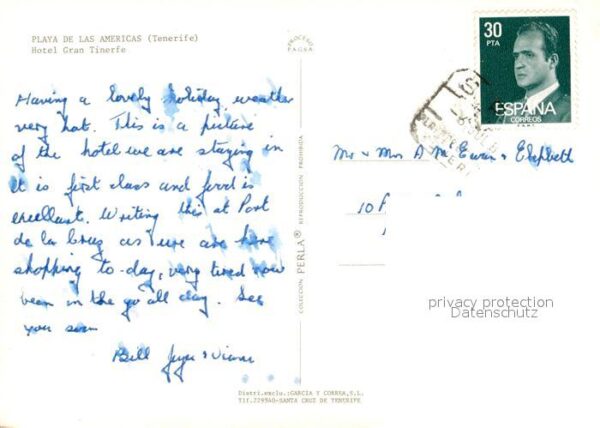 PLAYA DE LAS AMERICAS (Tenerife)
Hotel Gran Tinerfe
Having a lovely holiday, weather
very hot. This is a picture
of the hotel we are staying in
it is first class and food is
excellant. Writing this at Port
de la Cruz as we are here
shopping to-day, very tired now
been in the go all day. See
you soon
Bill Joyce &
Distri.exclu.:GARCIA Y CORREA,S.L.
Tlf.229540-SANTA CRUZ DE TENERIFE
COLECCION PERLA® REPRODUCCION PROHIBIDA
30
PTA
ESPAÑA
CORREOS
Mr & Mrs A Mc Ewan & Elspbeth
10
privacy protection
Datenschutz